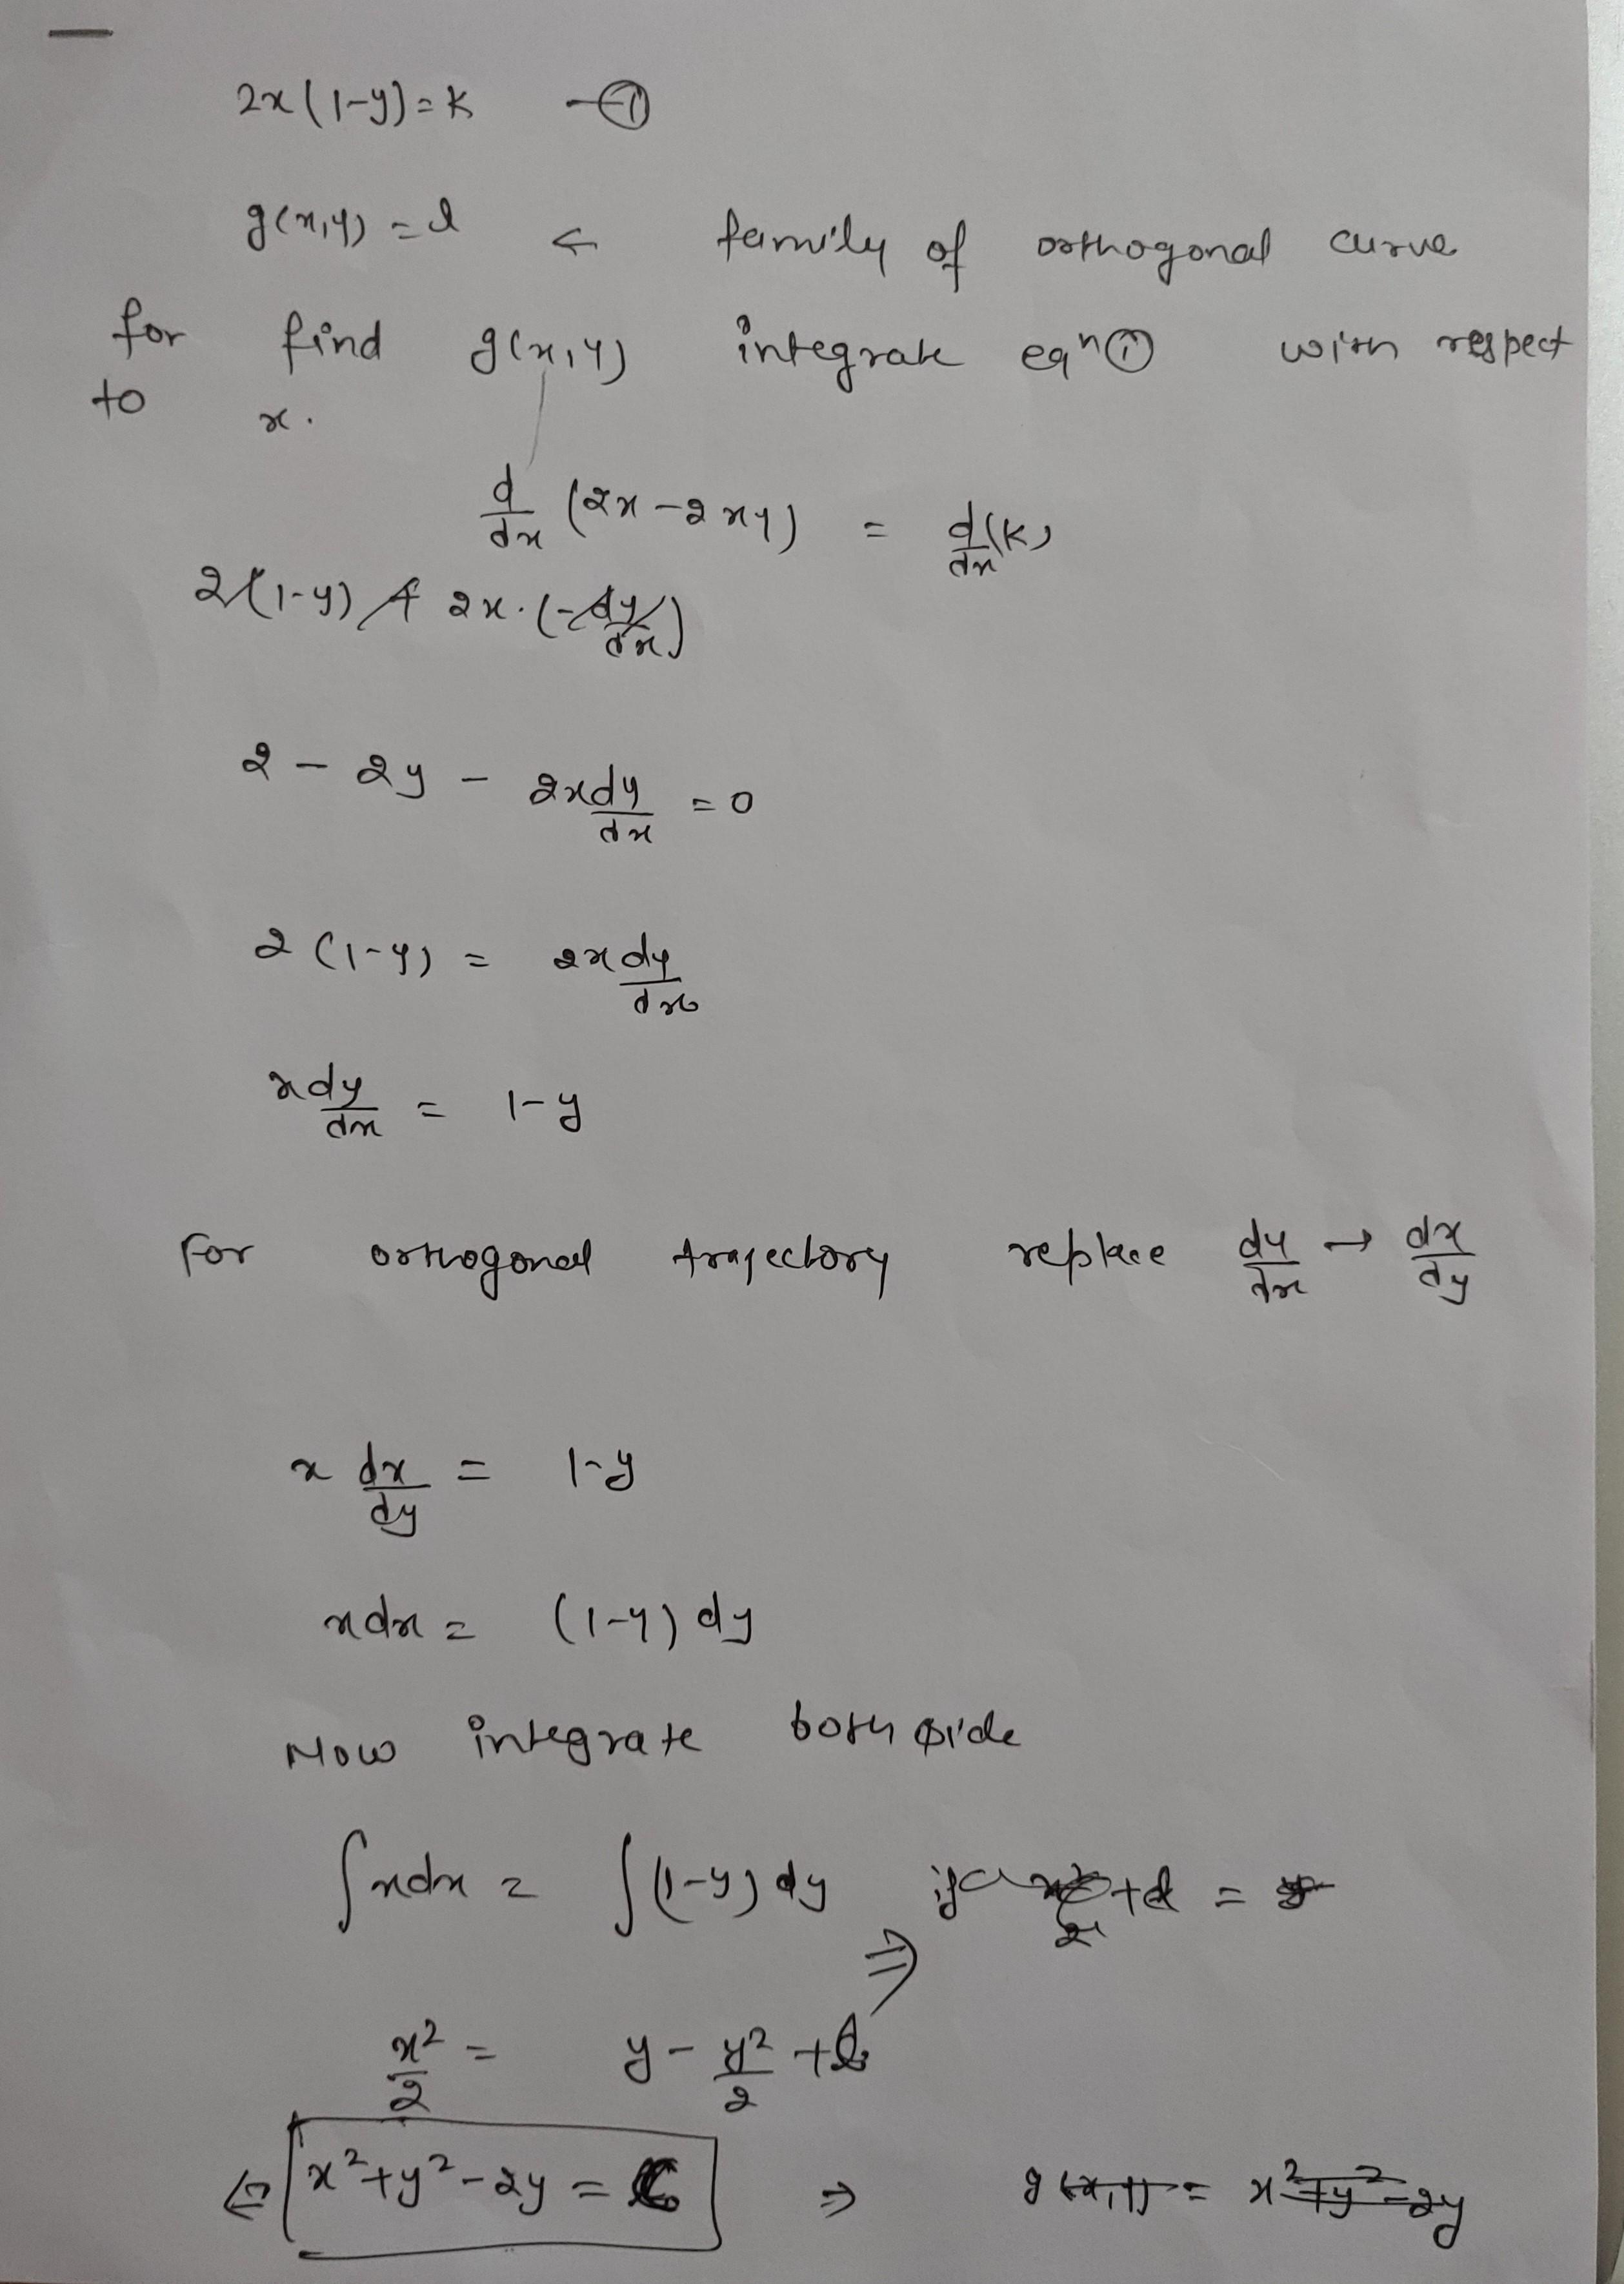 2x(1-y)=k —①
g(x,y) = l ← family of orthogonal curve
for find g(x,y) integrate eqⁿ① with respect
to x.
d/dx (2x-2xy) = d/dx(k)
2(1-y) + 2x.(-dy/dx)
2 - 2y - 2xdy/dx = 0
2(1-y) = 2xdy/dx
xdy/dx = 1-y
For orthogonal trajectory replace dy/dx → dx/dy
x dx/dy = 1-y
xdx = (1-y) dy
Now integrate both side
∫xdx = ∫(1-y)dy
⇒
x²/2 = y - y²/2 +
x²+y²-2y = C ⇒ g(x,y) = x²+y²-2y